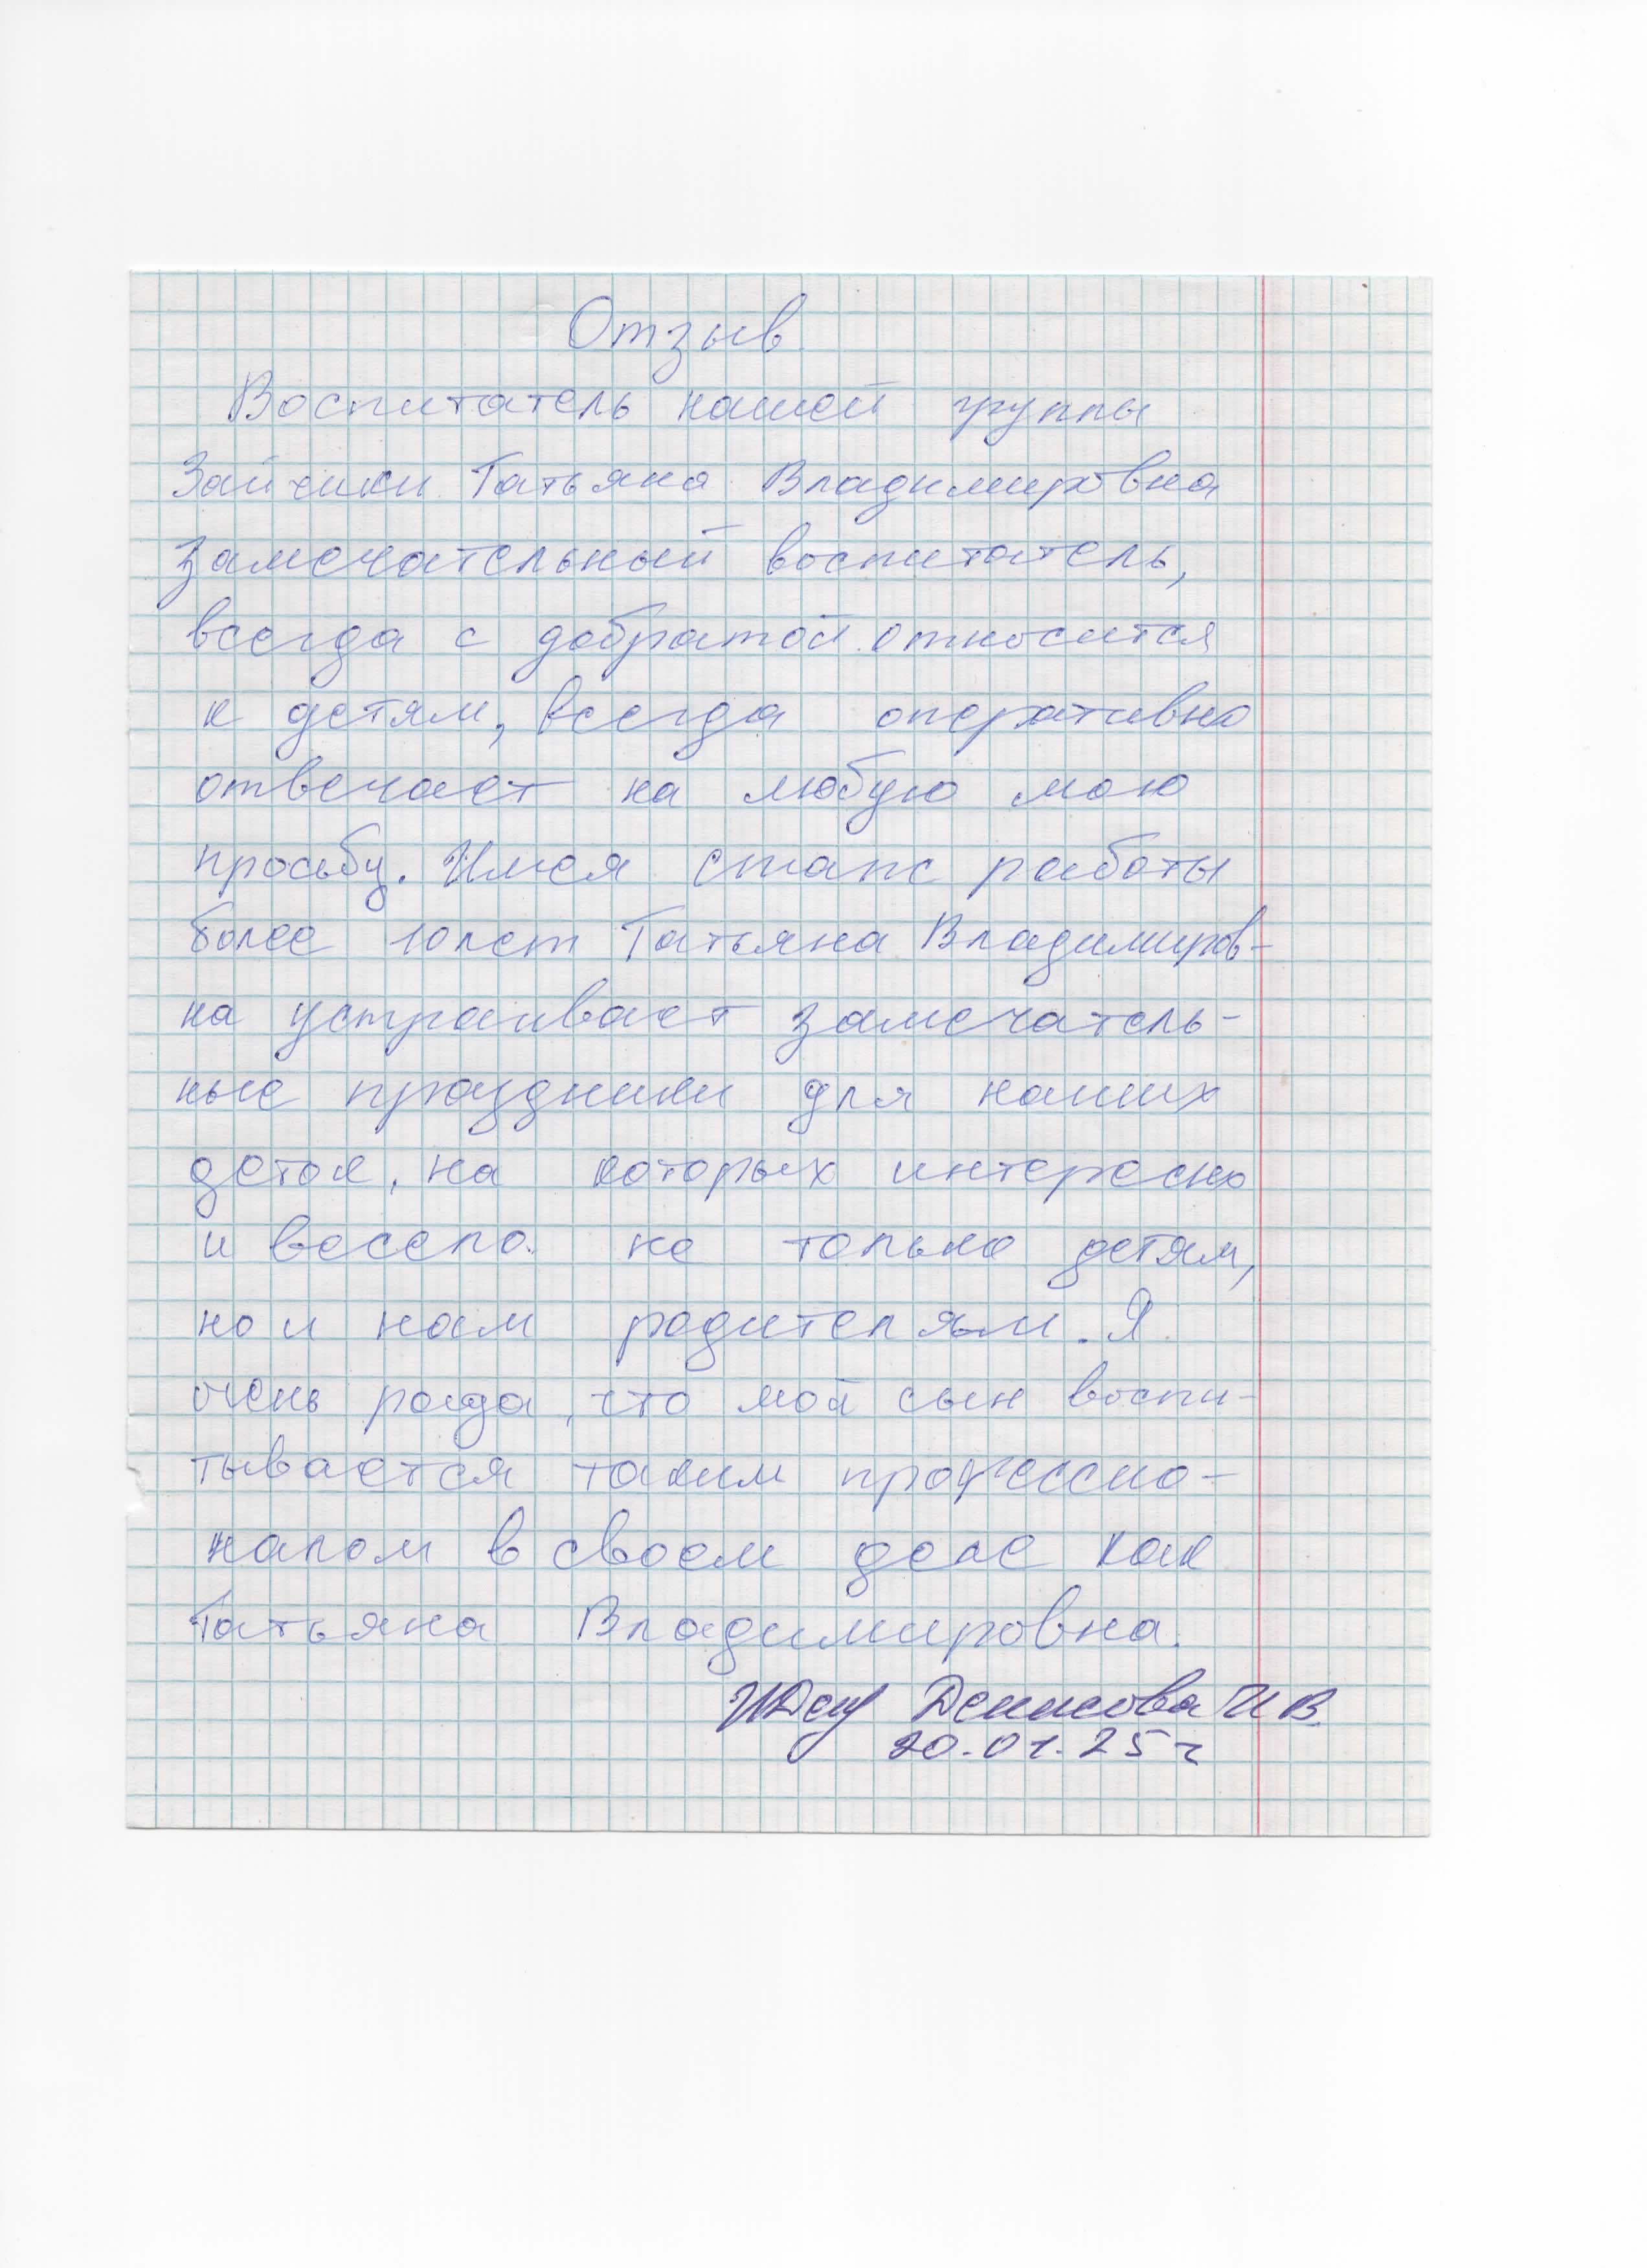 Отзыв
Воспитатель нашей группы
Зайчики Татьяна Владимировна
замечательный воспитатель,
всегда с добратой относится
к детям, всегда оперативно
отвечает на любую мою
просьбу. Имея стаж работы
более 10 лет Татьяна Владимиров-
на устраивает замечатель-
ные праздники для наших
детей, на которых интересно
и весело не только детям,
но и нам родителям. Я
очень рада, что мой сын воспи-
тывается таким профессио-
налом в своем деле как
Татьяна Владимировна.
Денисова И В.
20.01.25 г